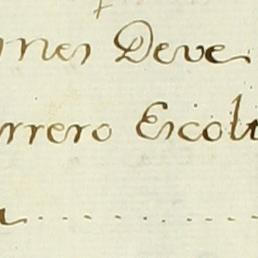 nnes Deve
rrero Escolt
a